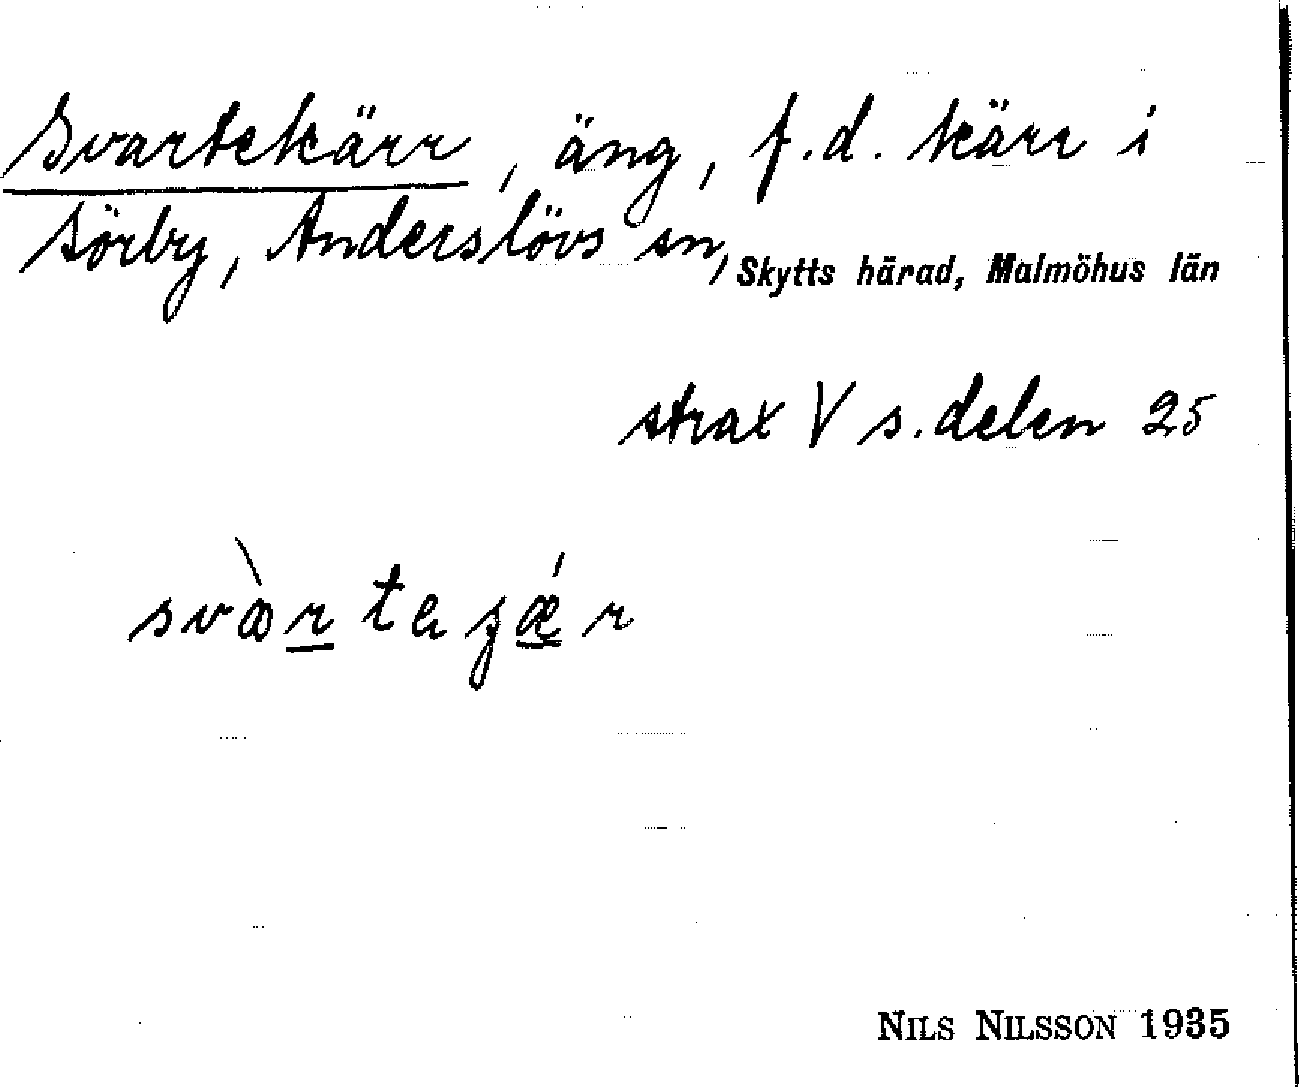 Svartekärr, äng, f.d. kärr i
Sörby, Anderslövs sn, Skytts härad, Malmöhus län
strax V s. delen 25
NILS NILSSON 1935